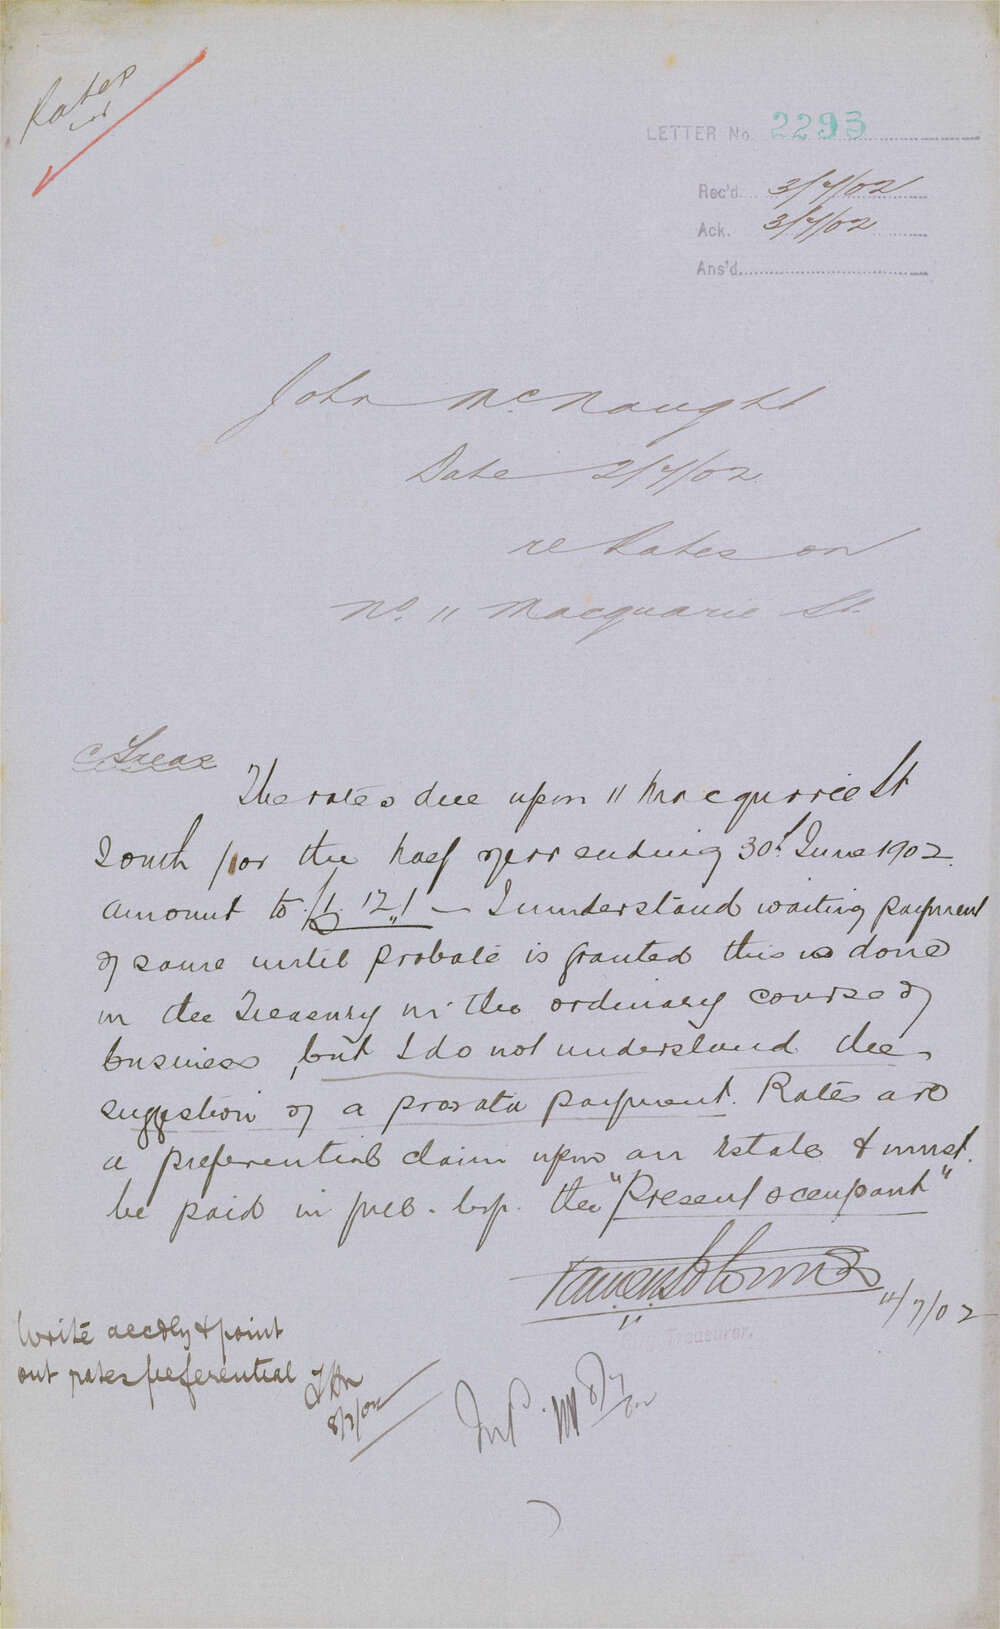 Rates
LETTER No. 2293
Rec'd. 3/7/02
Ack. 3/7/02
Ans'd.
John McNaught
Date 2/7/02
re Rates on
No. 11 Macquarie St.
C Treas
The rates due upon 11 Macquarie St
South for the half year ending 30th June 1902
amount to £1.12.1 — I understand waiting payment
of same until probate is granted this is done
in the Treasury in the ordinary course of
business, but I do not understand the
suggestion of a prorata payment. Rates are
a preferential claim upon an Estate & must
be paid in full by the "Present occupant"
Treasurer.
11/7/02
Write accdly & point
out rates preferential
8/7/02
8/7/02